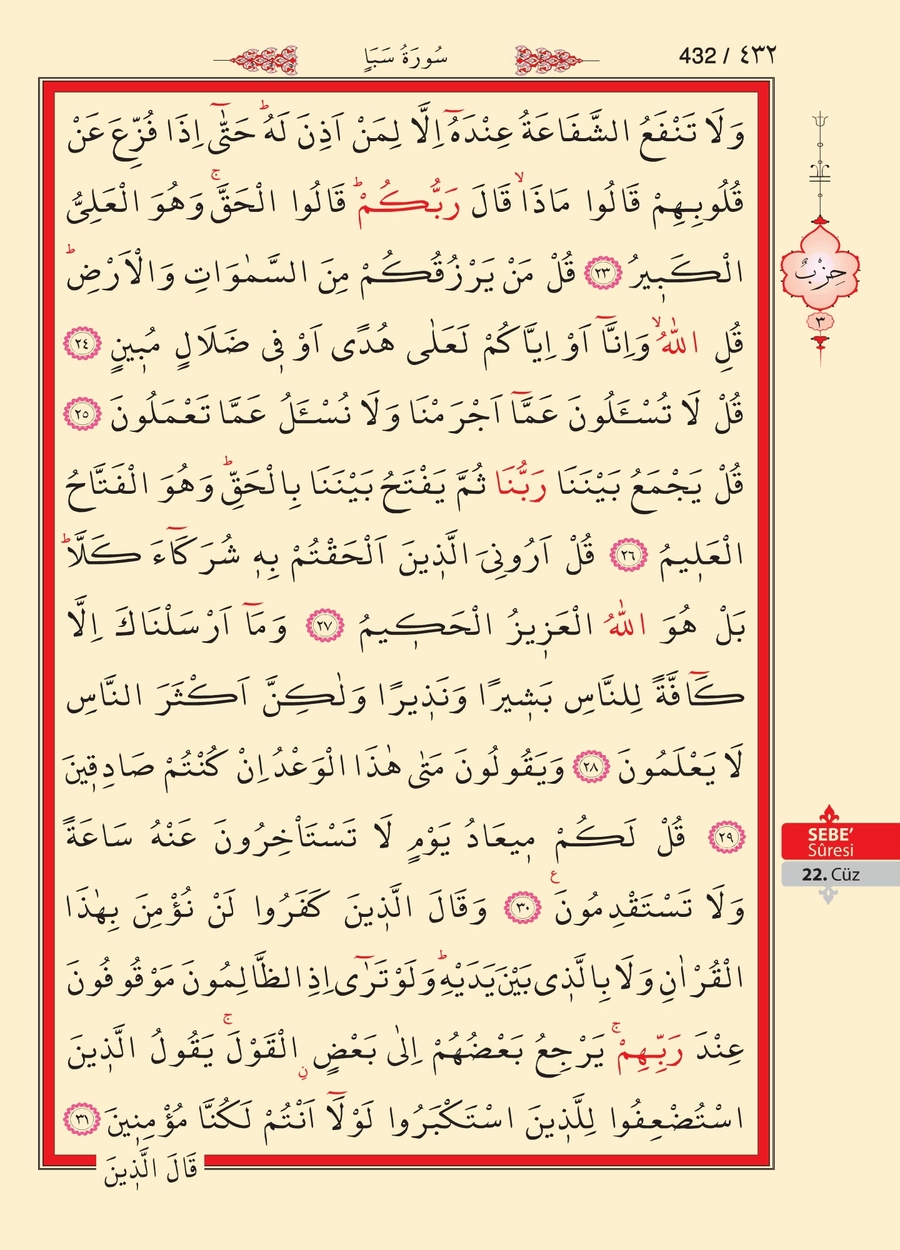 سُورَةُ سَبَأٍ
432 / ٤٣٢
وَلَا تَنْفَعُ الشَّفَاعَةُ عِنْدَهُٓ اِلَّا لِمَنْ اَذِنَ لَهُۜ حَتّٰٓى اِذَا فُزِّعَ عَنْ
قُلُوبِهِمْ قَالُوا مَاذَاۙ قَالَ رَبُّكُمْۜ قَالُوا الْحَقَّۚ وَهُوَ الْعَلِيُّ
الْكَب۪يرُ ﴿٢٣﴾ قُلْ مَنْ يَرْزُقُكُمْ مِنَ السَّمٰوَاتِ وَالْاَرْضِۜ
حِزْبٌ
٣
قُلِ اللّٰهُۙ وَاِنَّٓا اَوْ اِيَّاكُمْ لَعَلٰى هُدًى اَوْ ف۪ي ضَلَالٍ مُب۪ينٍ ﴿٢٤﴾
قُلْ لَا تُسْـَٔلُونَ عَمَّٓا اَجْرَمْنَا وَلَا نُسْـَٔلُ عَمَّا تَعْمَلُونَ ﴿٢٥﴾
قُلْ يَجْمَعُ بَيْنَنَا رَبُّنَا ثُمَّ يَفْتَحُ بَيْنَنَا بِالْحَقِّۜ وَهُوَ الْفَتَّاحُ
الْعَل۪يمُ ﴿٢٦﴾ قُلْ اَرُونِيَ الَّذ۪ينَ اَلْحَقْتُمْ بِه۪ شُرَكَٓاءَ كَلَّاۜ
بَلْ هُوَ اللّٰهُ الْعَز۪يزُ الْحَك۪يمُ ﴿٢٧﴾ وَمَٓا اَرْسَلْنَاكَ اِلَّا
كَٓافَّةً لِلنَّاسِ بَش۪يرًا وَنَذ۪يرًا وَلٰكِنَّ اَكْثَرَ النَّاسِ
لَا يَعْلَمُونَ ﴿٢٨﴾ وَيَقُولُونَ مَتٰى هٰذَا الْوَعْدُ اِنْ كُنْتُمْ صَادِق۪ينَ
﴿٢٩﴾ قُلْ لَكُمْ م۪يعَادُ يَوْمٍ لَا تَسْتَأْخِرُونَ عَنْهُ سَاعَةً
SEBE’
Sûresi
22. Cüz
وَلَا تَسْتَقْدِمُونَ ع ﴿٣٠﴾ وَقَالَ الَّذ۪ينَ كَفَرُوا لَنْ نُؤْمِنَ بِهٰذَا
الْقُرْاٰنِ وَلَا بِالَّذ۪ي بَيْنَ يَدَيْهِۜ وَلَوْ تَرٰٓى اِذِ الظَّالِمُونَ مَوْقُوفُونَ
عِنْدَ رَبِّهِمْۚ يَرْجِعُ بَعْضُهُمْ اِلٰى بَعْضٍۨ الْقَوْلَۚ يَقُولُ الَّذ۪ينَ
اسْتُضْعِفُوا لِلَّذ۪ينَ اسْتَكْبَرُوا لَوْلَٓا اَنْتُمْ لَكُنَّا مُؤْمِن۪ينَ ﴿٣١﴾
قَالَ الَّذ۪ينَ